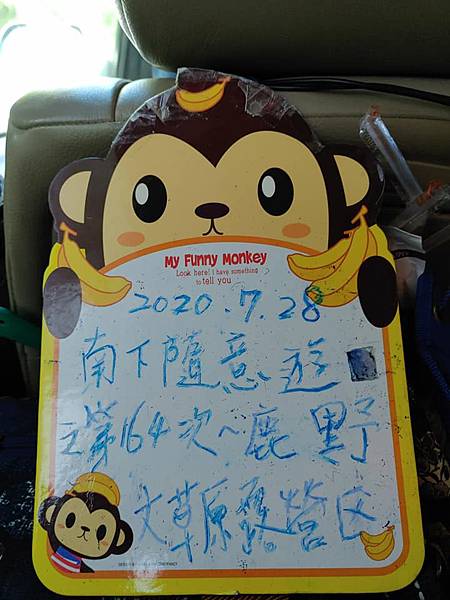 My Funny Monkey
Look here! I have something
to tell you
2020.7.28
南下隨意遊
之第164次~鹿野
大草原露營区